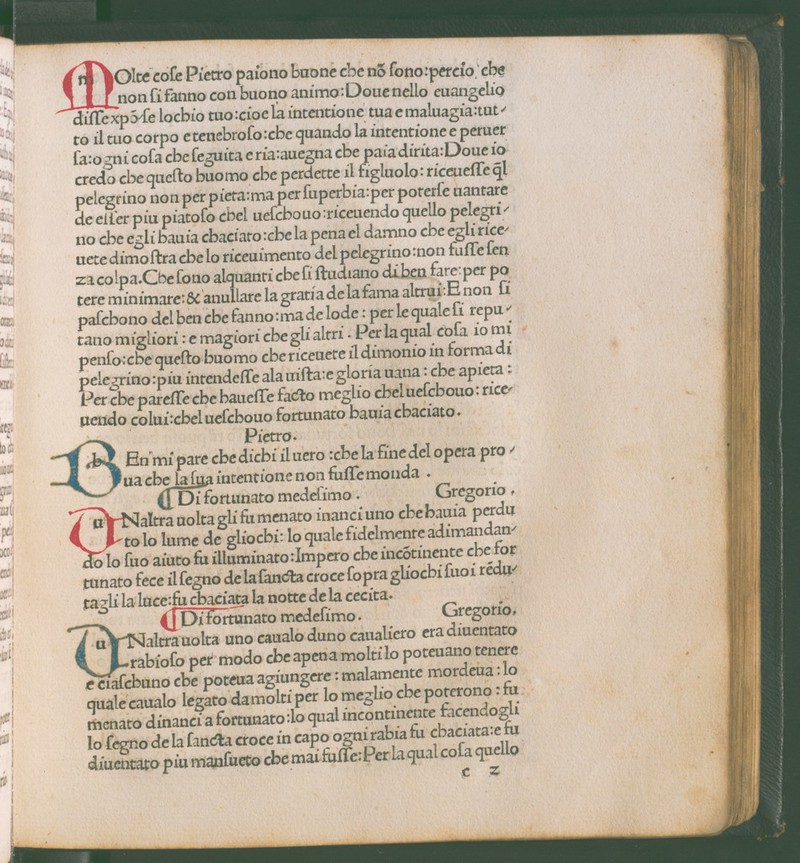 MOlte cose Pietro paiono buone che nõ sono:percio che
non si fanno con buono animo:Doue nello euangelio
disse xpõ se lochio tuo:cioe la intentione tua e maluagia:tut-
to il tuo corpo e tenebroso:che quando la intentione e peruer
sa:ogni cosa che seguita e ria:auegna che paia dirita:Doue io
credo che questo huomo che perdette il figluolo:riceuesse q̃l
pelegrino non per pieta:ma per superbia:per poterse uantare
de esser piu piatoso chel ueschouo:riceuendo quello pelegri-
no che egli hauia chaciato:che la pena el damno che egli rice-
uete dimostra che lo riceuimento del pelegrino:non fusse sen
za colpa.Che sono alquanti che si studiano di ben fare:per po
tere minimare:& anullare la gratia de la fama altrui:E non si
paschono del ben che fanno:ma de lode : per le quale si repu-
tano migliori : e magiori che gli altri . Per la qual cosa io mi
penso:che questo huomo che riceuete il dimonio in forma di
pelegrino:piu intendesse ala uista:e gloria uana : che apieta :
Per che paresse che hauesse facto meglio chel ueschouo: rice-
uendo colui:chel ueschouo fortunato hauia chaciato.
Pietro.
BEn mi pare che dichi il uero :che la fine del opera pro-
ua che la sua intentione non fusse monda .
¶ Di fortunato medesimo . Gregorio .
UNaltra uolta gli fu menato inanci uno che hauia perdu
to lo lume de gliochi: lo quale fidelmente adimandan-
do lo suo aiuto fu illuminato:Impero che incõtinente che for
tunato fece il segno de la sancta croce sopra gliochi suoi rẽdu-
tagli la luce:fu chaciata la notte de la cecita.
¶ Di fortunato medesimo. Gregorio.
UNaltra uolta uno caualo duno caualiero era diuentato
rabioso per modo che apena molti lo poteuano tenere
e ciaschuno che poteua agiungere : malamente mordeua : lo
quale caualo legato da molti per lo meglio che poterono : fu
menato dinanci a fortunato:lo qual incontinente facendogli
lo segno de la sancta croce in capo ogni rabia fu chaciata:e fu
diuentato piu mansueto che mai fusse:Per la qual cosa quello
c 2